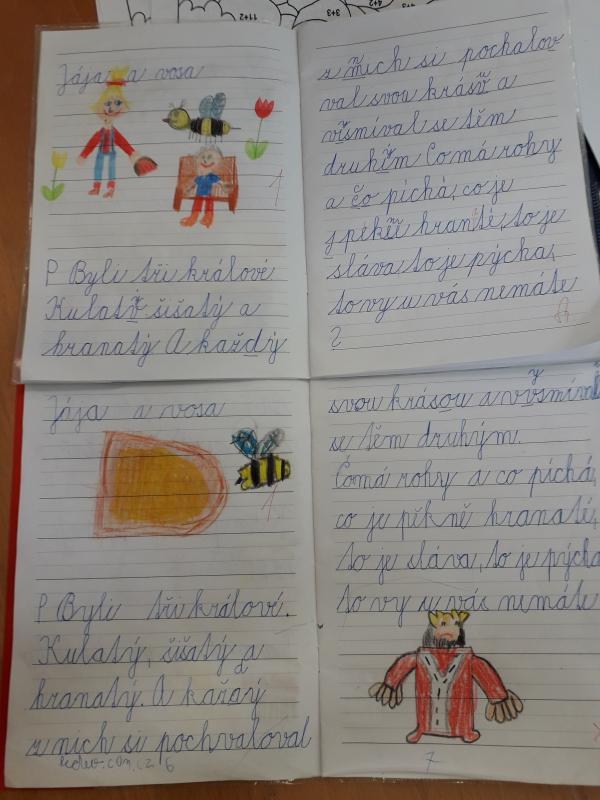 11+2
3+3
Jája a vosa
1
P Byli tři králové
Kulatý šišatý a
hranatý A každý
z nich si pochalov
val svou krásů a
vismíval se těm
druhím Comá rohy
a čo píchá, co je
pěkěi hranté, to je
sláva, to je pýcha,
to vy u vás nemáte
2
Jája a vosa
1
P Byli tři králové.
Kulatý, šišatý a
hranatý. A každý
z nich si pochvaloval
6
svou krásou a vysmíval
se těm druhým.
Comá rohy a co píchá,
co je pěkně hranaté,
to je sláva, to je pýcha
to vy u vás nemáte
7